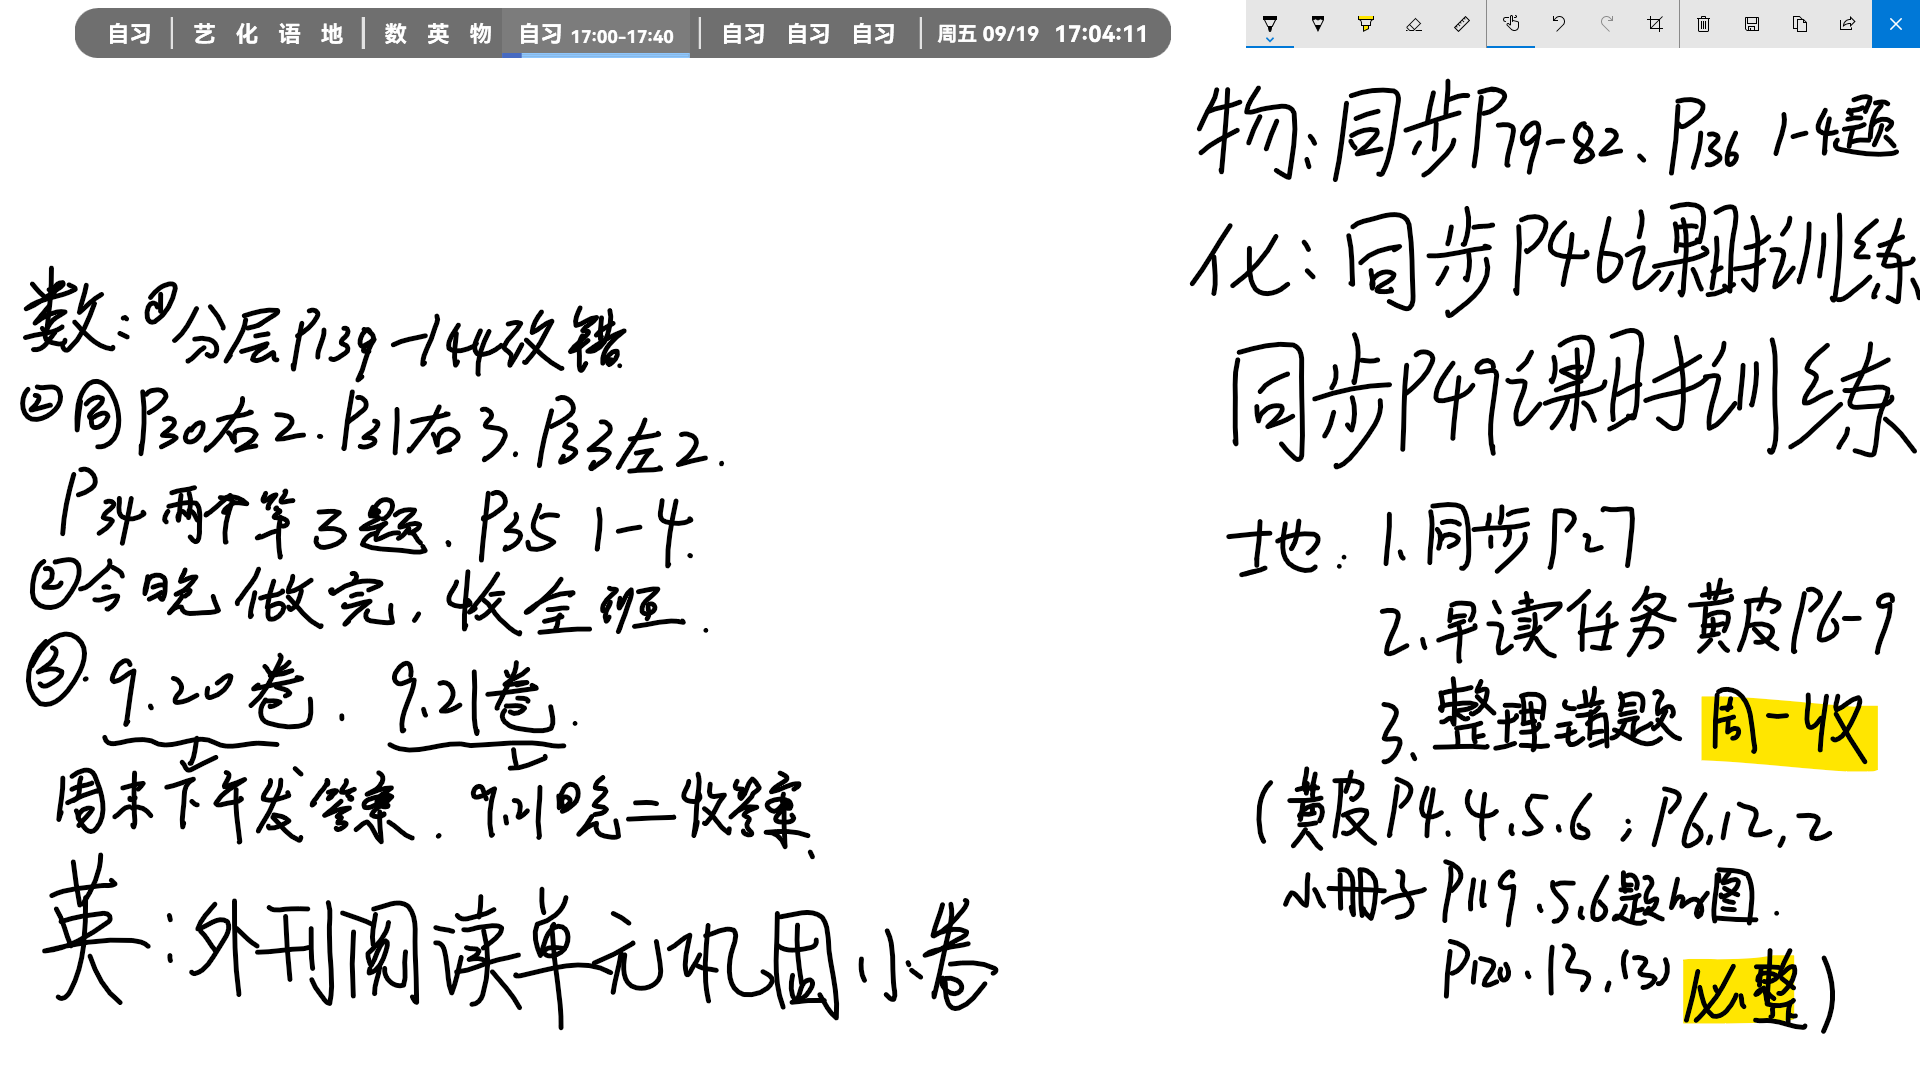 自习 | 艺 化 语 地 | 数 英 物 自习 17:00-17:40 | 自习 自习 自习 | 周五 09/19 17:04:11
数:①分层P139-144改错.
②同P30右2.P31右3.P33左2.
P34两个第3题.P35 1-4.
②今晚做完,收全班.
③.9.20卷.9.21卷.
周末下午发答案.9.21日晚二收答案.
英:外刊阅读单元巩固小卷
物:同步P79-82、P136 1-4题
化:同步P46课时训练
同步P49课时训练
地:1.同步P27
2.早读任务黄皮P6-9
3.整理错题 周一收
(黄皮P4.4.5.6;P6.12,2
小册子P119.5.6题的图.
P120.13,(3)必整)